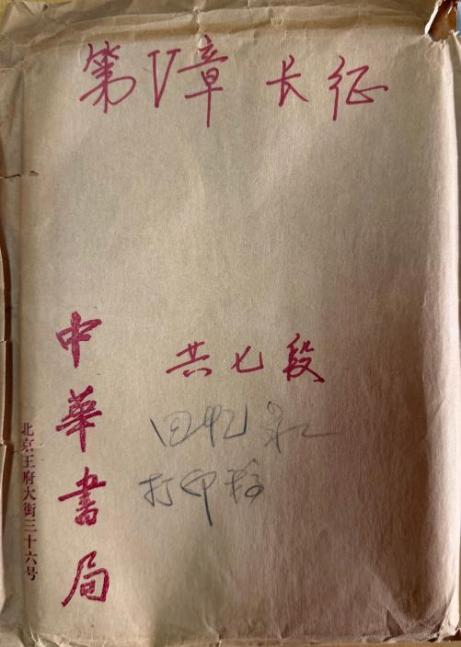 第V章 长征
共七段
回忆录
打印稿
中華書局
北京王府大街三十六号